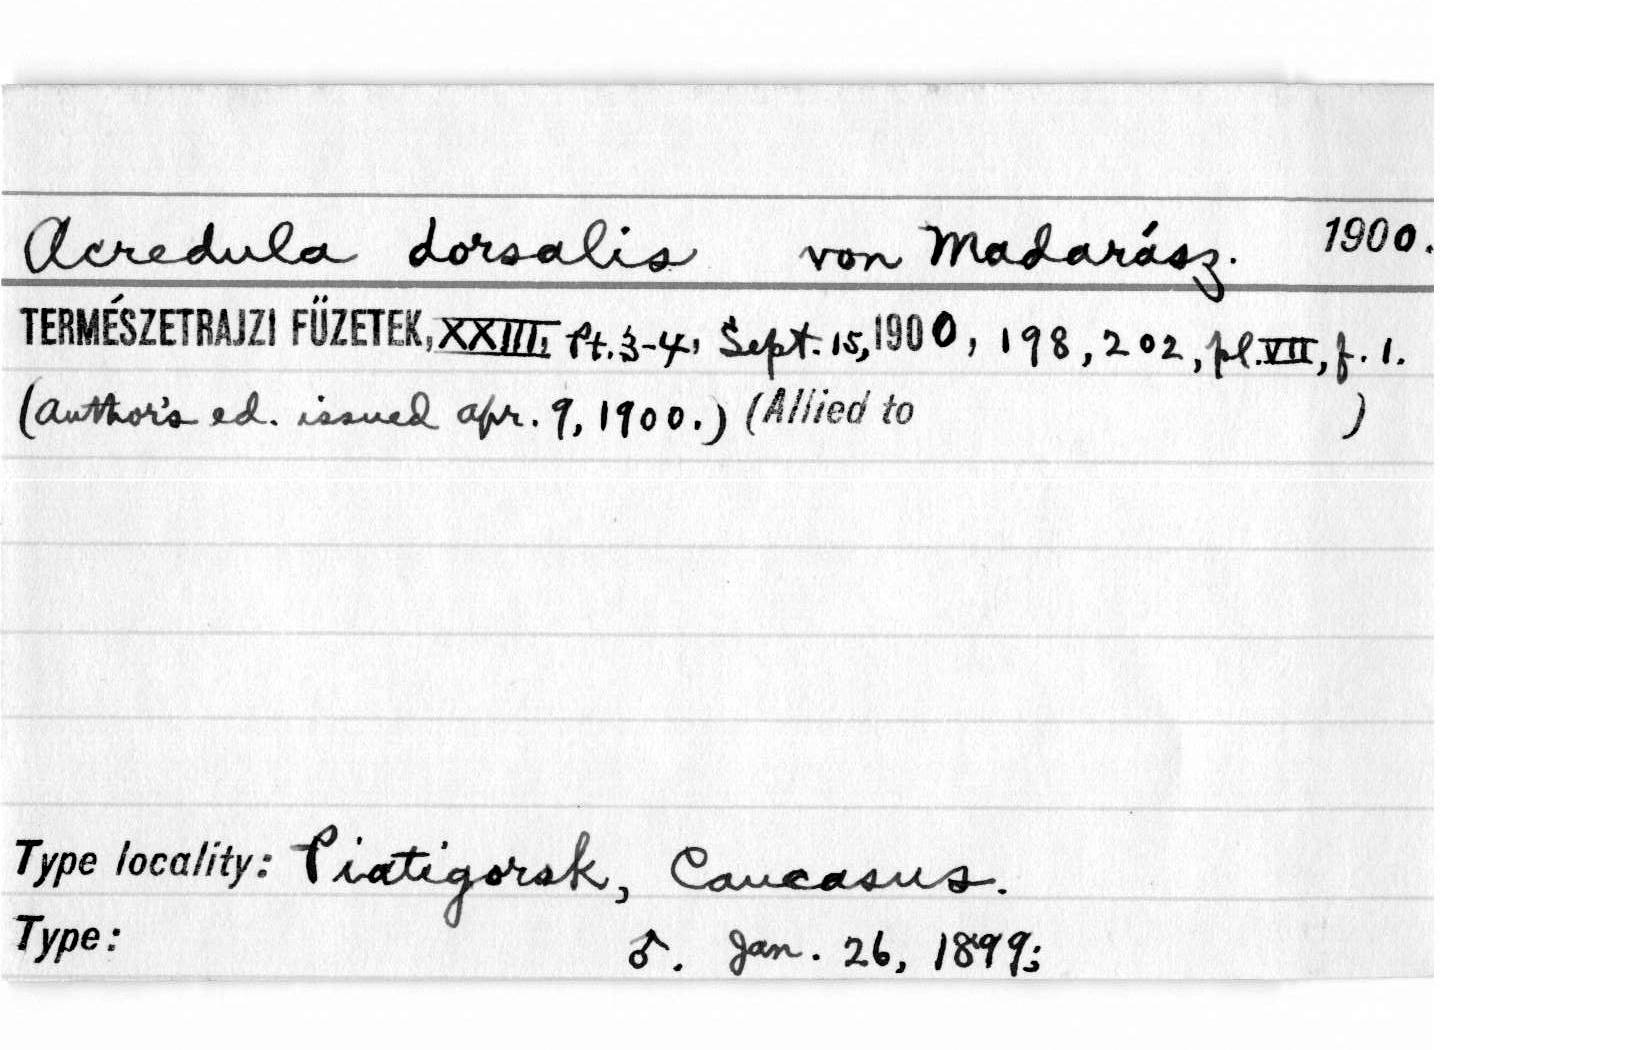 Acredula dorsalis von Madarász. 1900.
TERMÉSZETRAJZI FÜZETEK, XXIII, Pt. 3-4, Sept. 15, 1900, 198, 202, pl. VII, f. 1.
(Author's ed. issued Apr. 9, 1900.) (Allied to )
Type locality: Piatigorsk, Caucasus.
Type: ♂. Jan. 26, 1899;